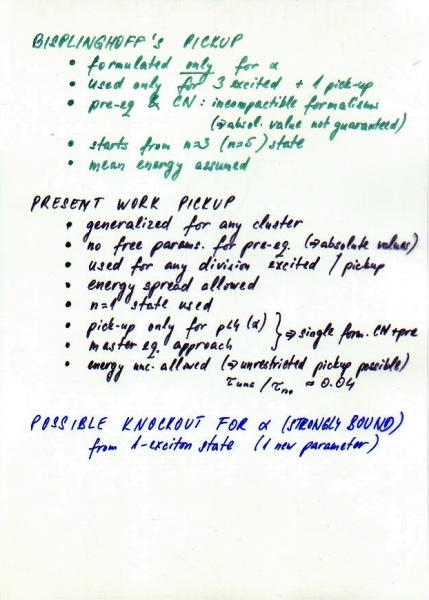 BISPLINGHOFF'S PICKUP
• formulated only for α
• used only for 3 excited + 1 pick-up
• pre-eq & CN: incompactible formalisms
(⇒ absol. value not guaranteed)
• starts from n=3 (n=5) state
• mean energy assumed
PRESENT WORK PICKUP
• generalized for any cluster
• no free params. for pre-eq. (⇒ absolute values)
• used for any division excited / pickup
• energy spread allowed
• n=1 state used
• pick-up only for p≤4 (α)
• master eq. approach } ⇒ single form. CN + pre
• energy unc. allowed (⇒ unrestricted pickup possible)
τunc / τn₀ ≈ 0.04
POSSIBLE KNOCKOUT FOR α (STRONGLY BOUND)
from 1-exciton state (1 new parameter)